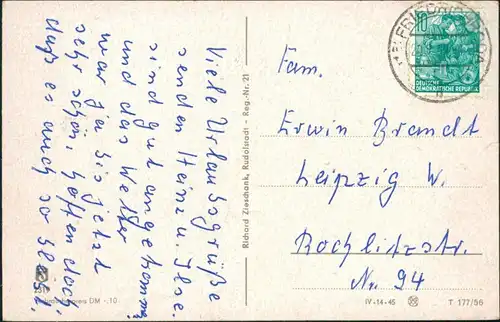 Viele Urlaubsgrüße
senden Heinz u. Ilse.
sind gut angekommen
und das Wetter
war ja bis jetzt
sehr schön, hoffen doch,
daß es auch so bleibt.
Richard Zieschank, Rudolstadt - Reg.-Nr. 21
10
DEUTSCHE
DEMOKRATISCHE REPUBLIK
Fam.
Erwin Brandt
Leipzig W.
Rochlitzstr.
Nr. 94
DM -,10
IV-14-45
T 177/56